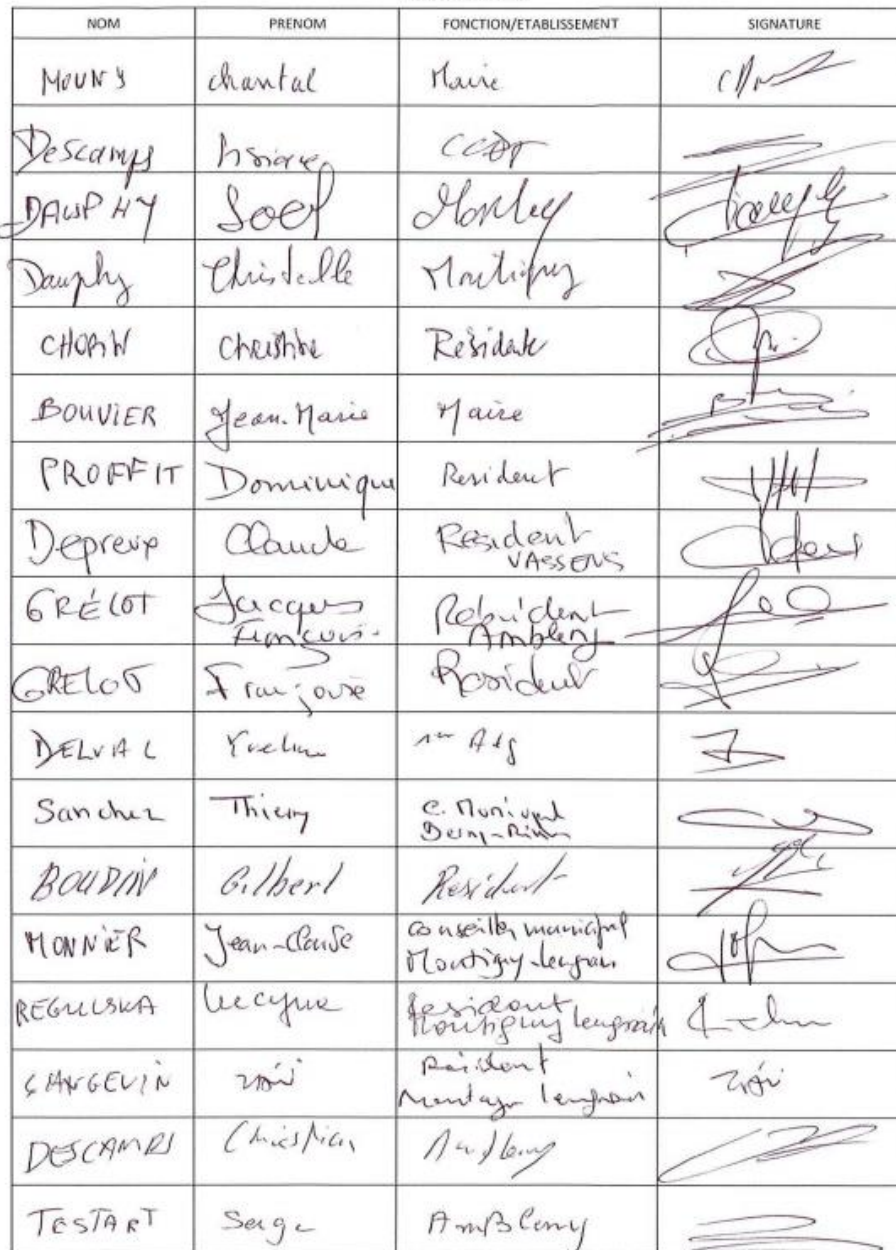 NOM PRENOM FONCTION/ETABLISSEMENT SIGNATURE
MOUNY Chantal Maire
Descamps CCDT
DAUPHY Joel Montigny
Dauphy Christelle Montigny
CHOPIN Christine Résidente
BOUVIER Jean-Marie Maire
PROFFIT Dominique Resident
Depreux Claude Resident
VASSENS
GRÉLOT Jacques Résident
François Ambleny
GRELOT Françoise Resident
DELVAL Yveline 1er Adj
Sanchez Thierry C. Municipal
Berny-Rivière
BOUDIN Gilbert Resident
MONNIER Jean-Claude conseiller municipal
Montigny-lengrain
REGULSKA Lucyna résident
Montigny lengrain
LANGEVIN Résident
Montigny lengrain
DESCAMPS Christian Ambleny
TESTART Serge Ambleny